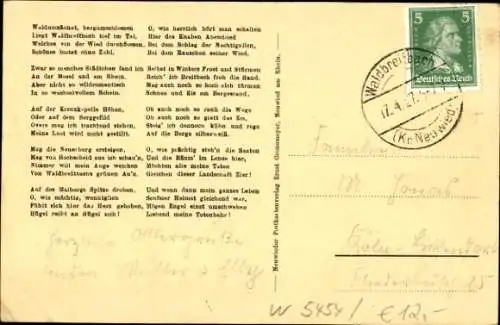 Waldumsäumt, bergumschlossen
Liegt Waldbreitbach tief im Tal.
Welches von der Wied durchflossen,
Schönes bietet ohne Zahl.
Zwar so manches Städtchen fand ich
An der Mosel und am Rhein,
Aber nicht so wildromantisch
In so wechselvollem Schein.
Auf der Kreuzkapelle Höhen,
Oder auf dem Berggefild
Overs mag ich trunkend stehen,
Meine Lust wird nicht gestillt.
Mag die Neuerburg ersteigen,
Mag von Hochscheid aus ich schau'n,
Nimmer will mein Auge weichen
Von Waldbreitbachs grünen Au'n.
Auf des Malbergs Spitze droben,
O, wie mächtig, wonniglich
Fühlt sich hier das Herz gehoben,
Hügel reiht an Hügel sich!
O, wie herrlich hört man schallen
Hier des Knaben Abendlied
Bei dem Schlag der Nachtigallen,
Bei dem Rauschen seiner Wied.
Selbst in Winters Frost und Stürmen
Reich' ich Breitbach froh die Hand.
Mag auch noch so hoch sich türmen
Schnee und Eis am Bergesrand.
Ob auch noch so rauh die Wege
Ob auch noch so glatt das Eis,
Steig' ich dennoch kühn und rege
Auf die Berge silberweiß.
O, wie prächtig steh'n die Saaten
Und die Bäum' im Lenze hier,
Möchten alle meine Taten
Gleichen dieser Landschaft Zier!
Und wenn dann mein ganzes Leben
Seufzer Heimat gleichend war,
Mögen Engel einst umschweben
Lostend meine Totenbahr!
Neuwieder Postkartenverlag Ernst Gronemeyer, Neuwied am Rhein.
5 5
Deutsches Reich
Waldbreitbach
17.4.
(Kr. Neuwied)
Familie
M
Herzliche Ostergrüße
W 5454/ €12,-